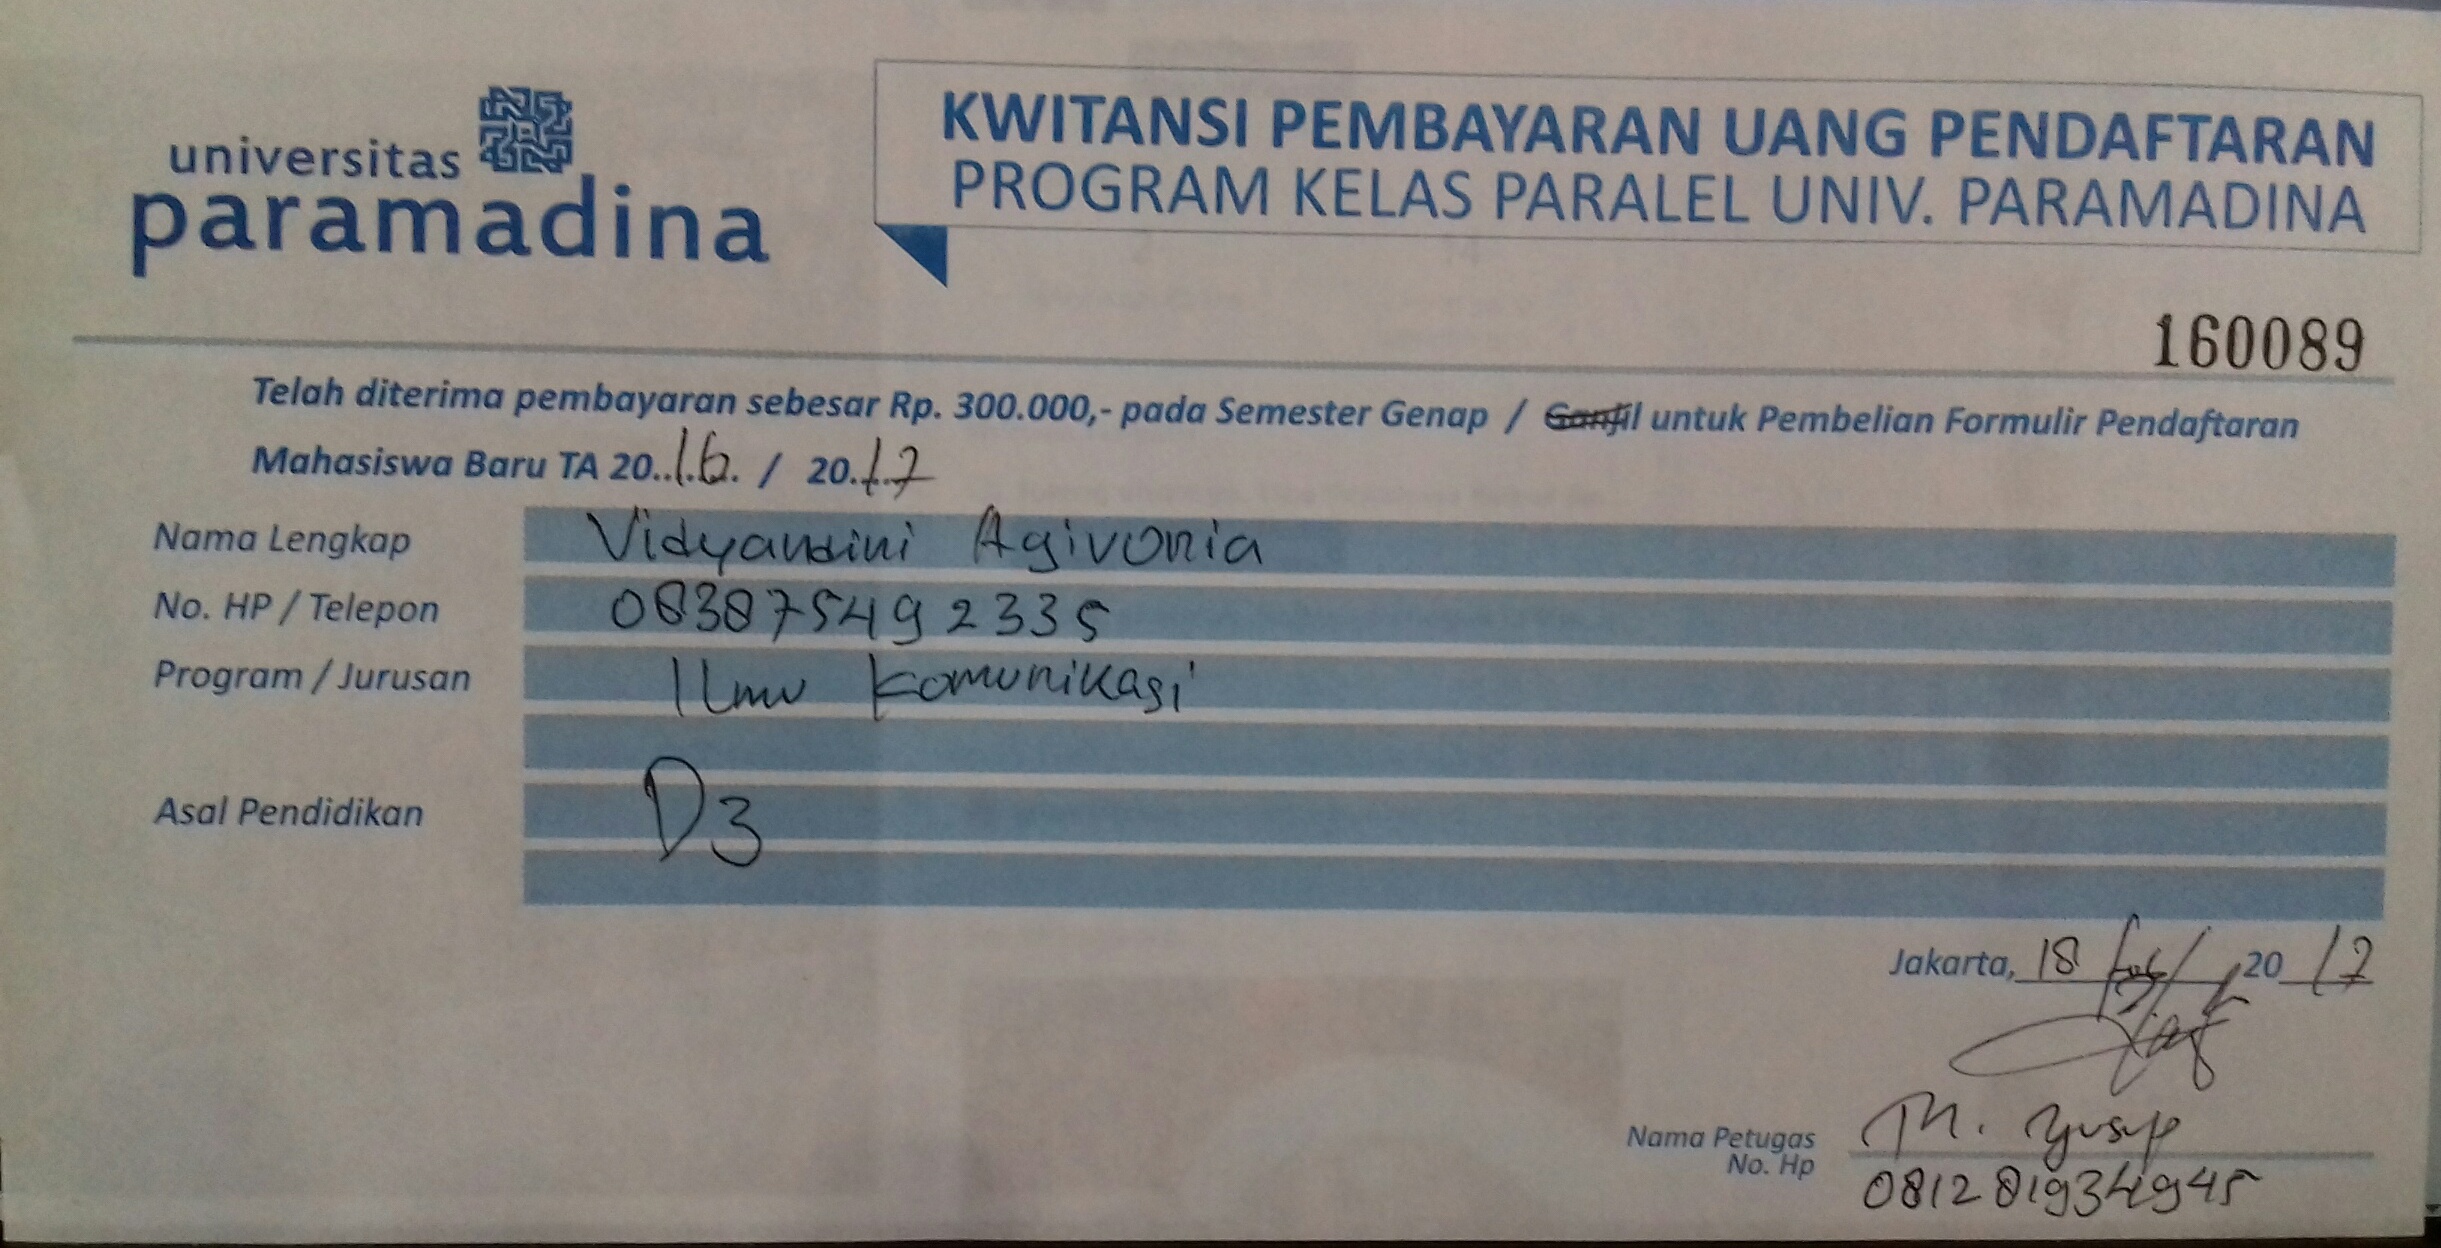 universitas
paramadina
KWITANSI PEMBAYARAN UANG PENDAFTARAN
PROGRAM KELAS PARALEL UNIV. PARAMADINA
160089
Telah diterima pembayaran sebesar Rp. 300.000,- pada Semester Genap / Ganjil untuk Pembelian Formulir Pendaftaran
Mahasiswa Baru TA 20..16. / 20.17
Nama Lengkap Vidyandini Agivonia
No. HP / Telepon 083875492335
Program / Jurusan Ilmu Komunikasi
Asal Pendidikan D3
Jakarta, 18 20 17
Nama Petugas M. Yusup
No. Hp 081281934945